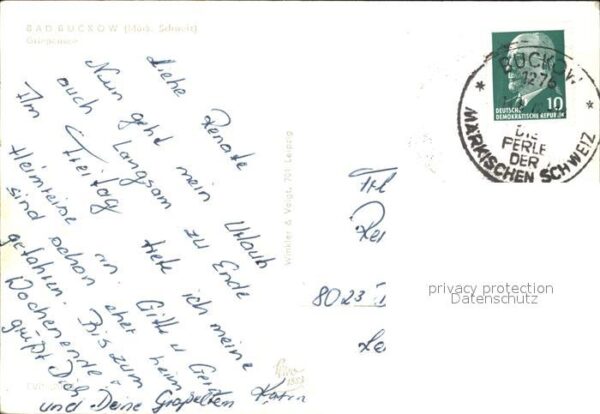 BAD BUCKOW (Märk. Schweiz)
Griepensee
Liebe Renate
Nun geht mein Urlaub
auch langsam zu Ende
Am Freitag trete ich meine
Heimreise an. Gitte u Gerd
sind schon eher heim
gefahren. Bis zum
Wochenende
grüßt Dich
und Deine Großeltern Karin
Winkler & Voigt, 701 Leipzig
BUCKOW
1276
DIE
PERLE
DER
MÄRKISCHEN SCHWEIZ
DEUTSCHE
DEMOKRATISCHE REPUBLIK
10
Frl
Re
8023
privacy protection
Datenschutz